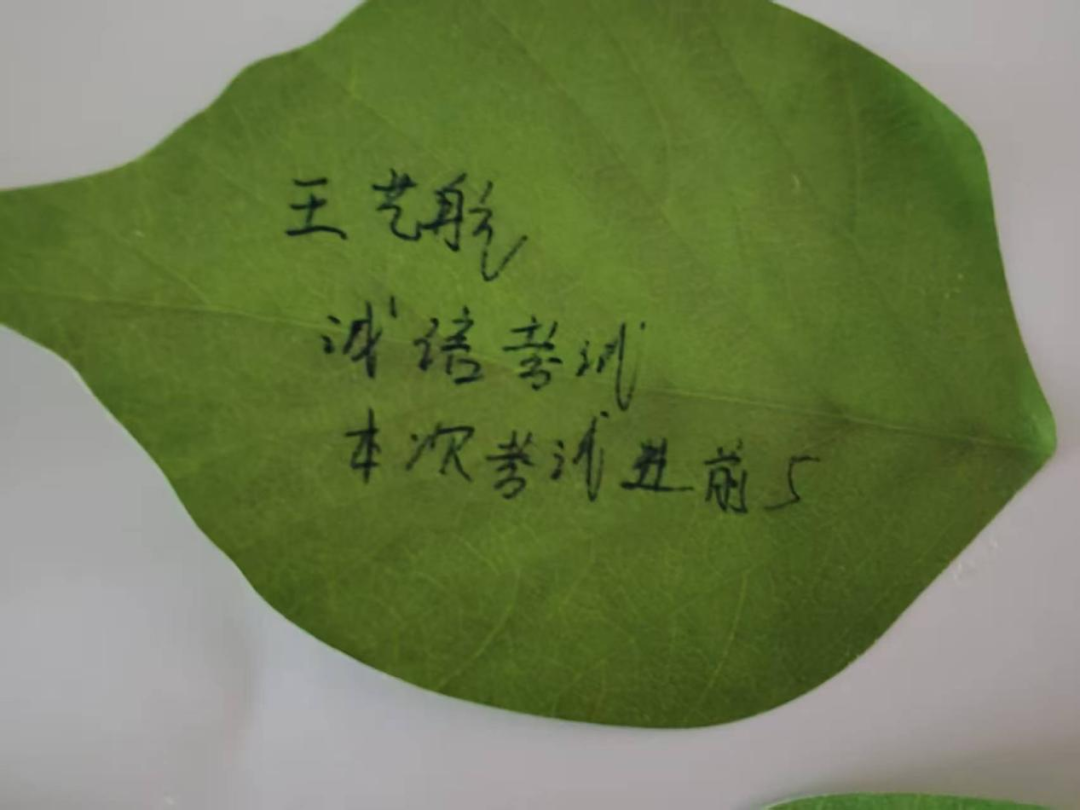 王艺航
诚信考试
本次考试进前5